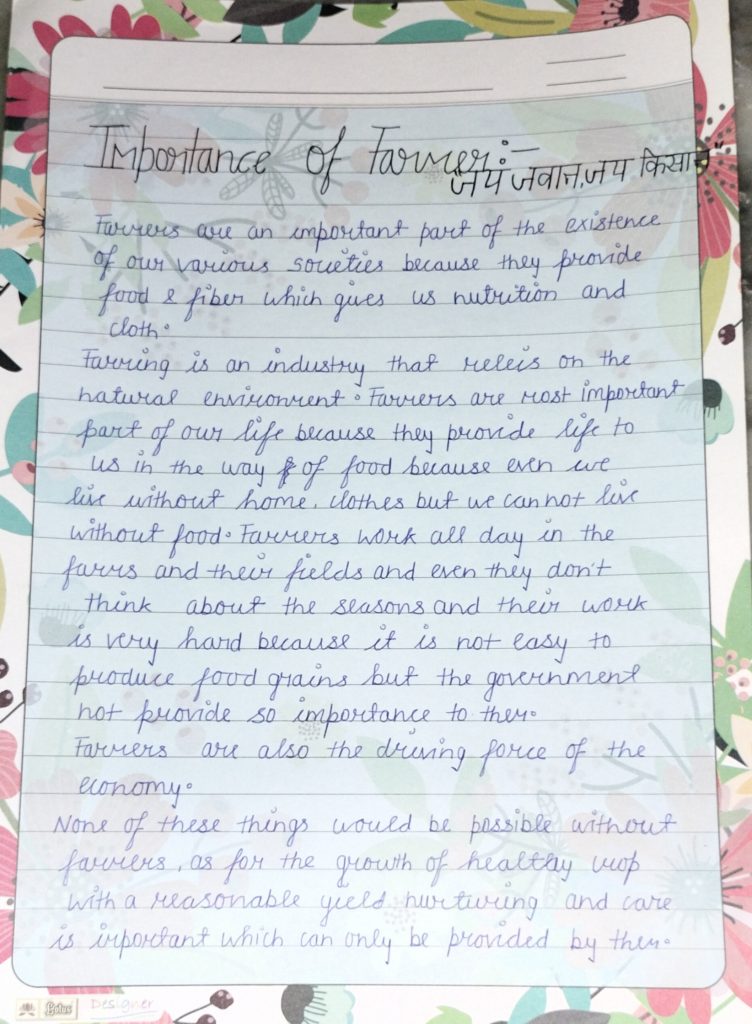 Importance of Farmer:-
"जय जवान, जय किसान"
Farmers are an important part of the existence
of our various societies because they provide
food & fiber which gives us nutrition and
cloth.
Farming is an industry that releis on the
natural environment. Farmers are most important
part of our life because they provide life to
us in the way of food because even we
live without home, clothes but we cannot live
without food. Farmers work all day in the
farms and their fields and even they don't
think about the seasons and their work
is very hard because it is not easy to
produce food grains but the government
not provide so importance to them.
Farmers are also the driving force of the
economy.
None of these things would be possible without
farmers, as for the growth of healthy crop
with a reasonable yield nurturing and care
is important which can only be provided by them.
Lotus Designer